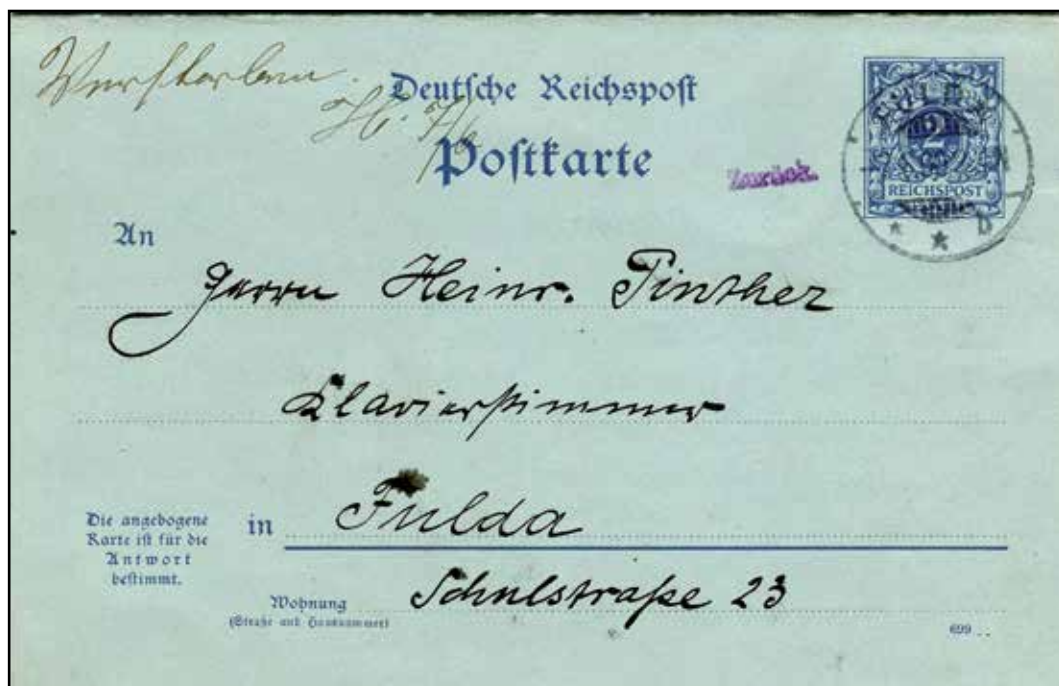 Verstorben.
Deutsche Reichspost
Postkarte
Zurück.
2
REICHSPOST
b
An
Herrn Heinr. Pinther
Klavierstimmer
Die angebogene
Karte ist für die
Antwort
bestimmt.
in Fulda
Wohnung
(Straße und Hausnummer)
Schulstraße 23
699